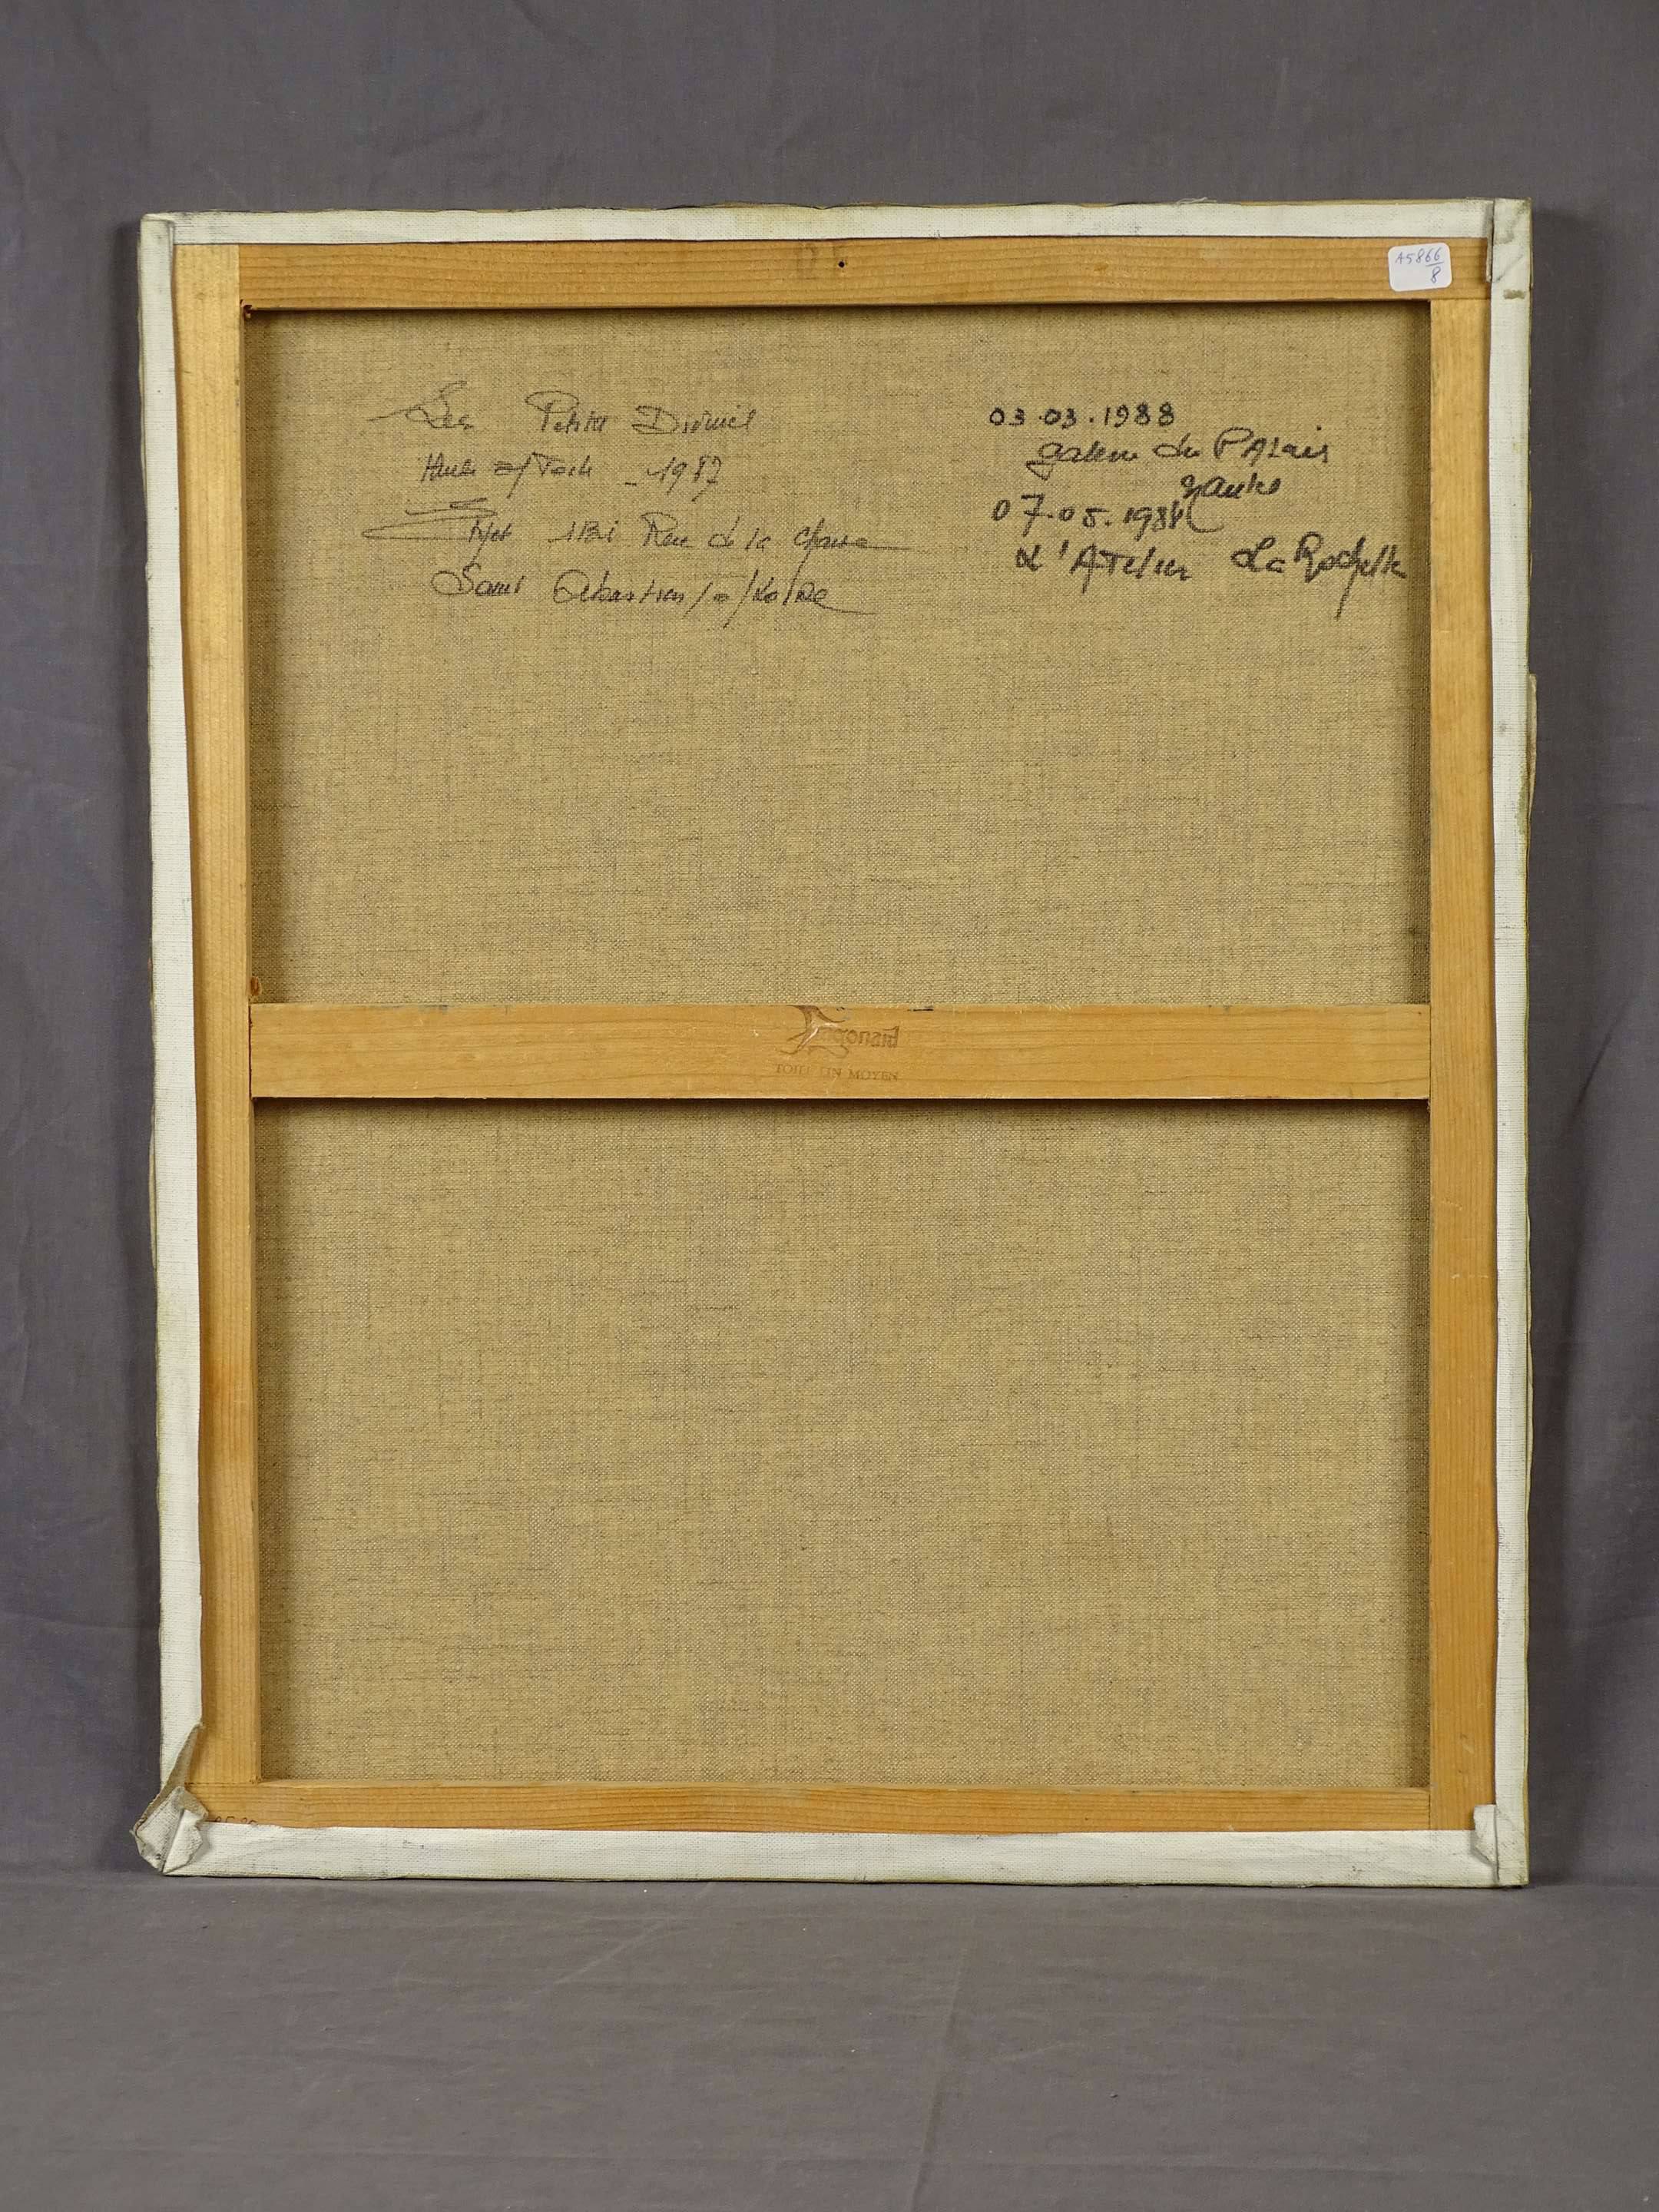 A5866
8
Les Petits
Huile s/Toile - 1987
1Bi Rue de la
Saint Sébastien/s/Loire
03.03.1988
galerie du PALais
07.05.1988
L'ATelier La Rochelle
TOILE LIN MOYEN